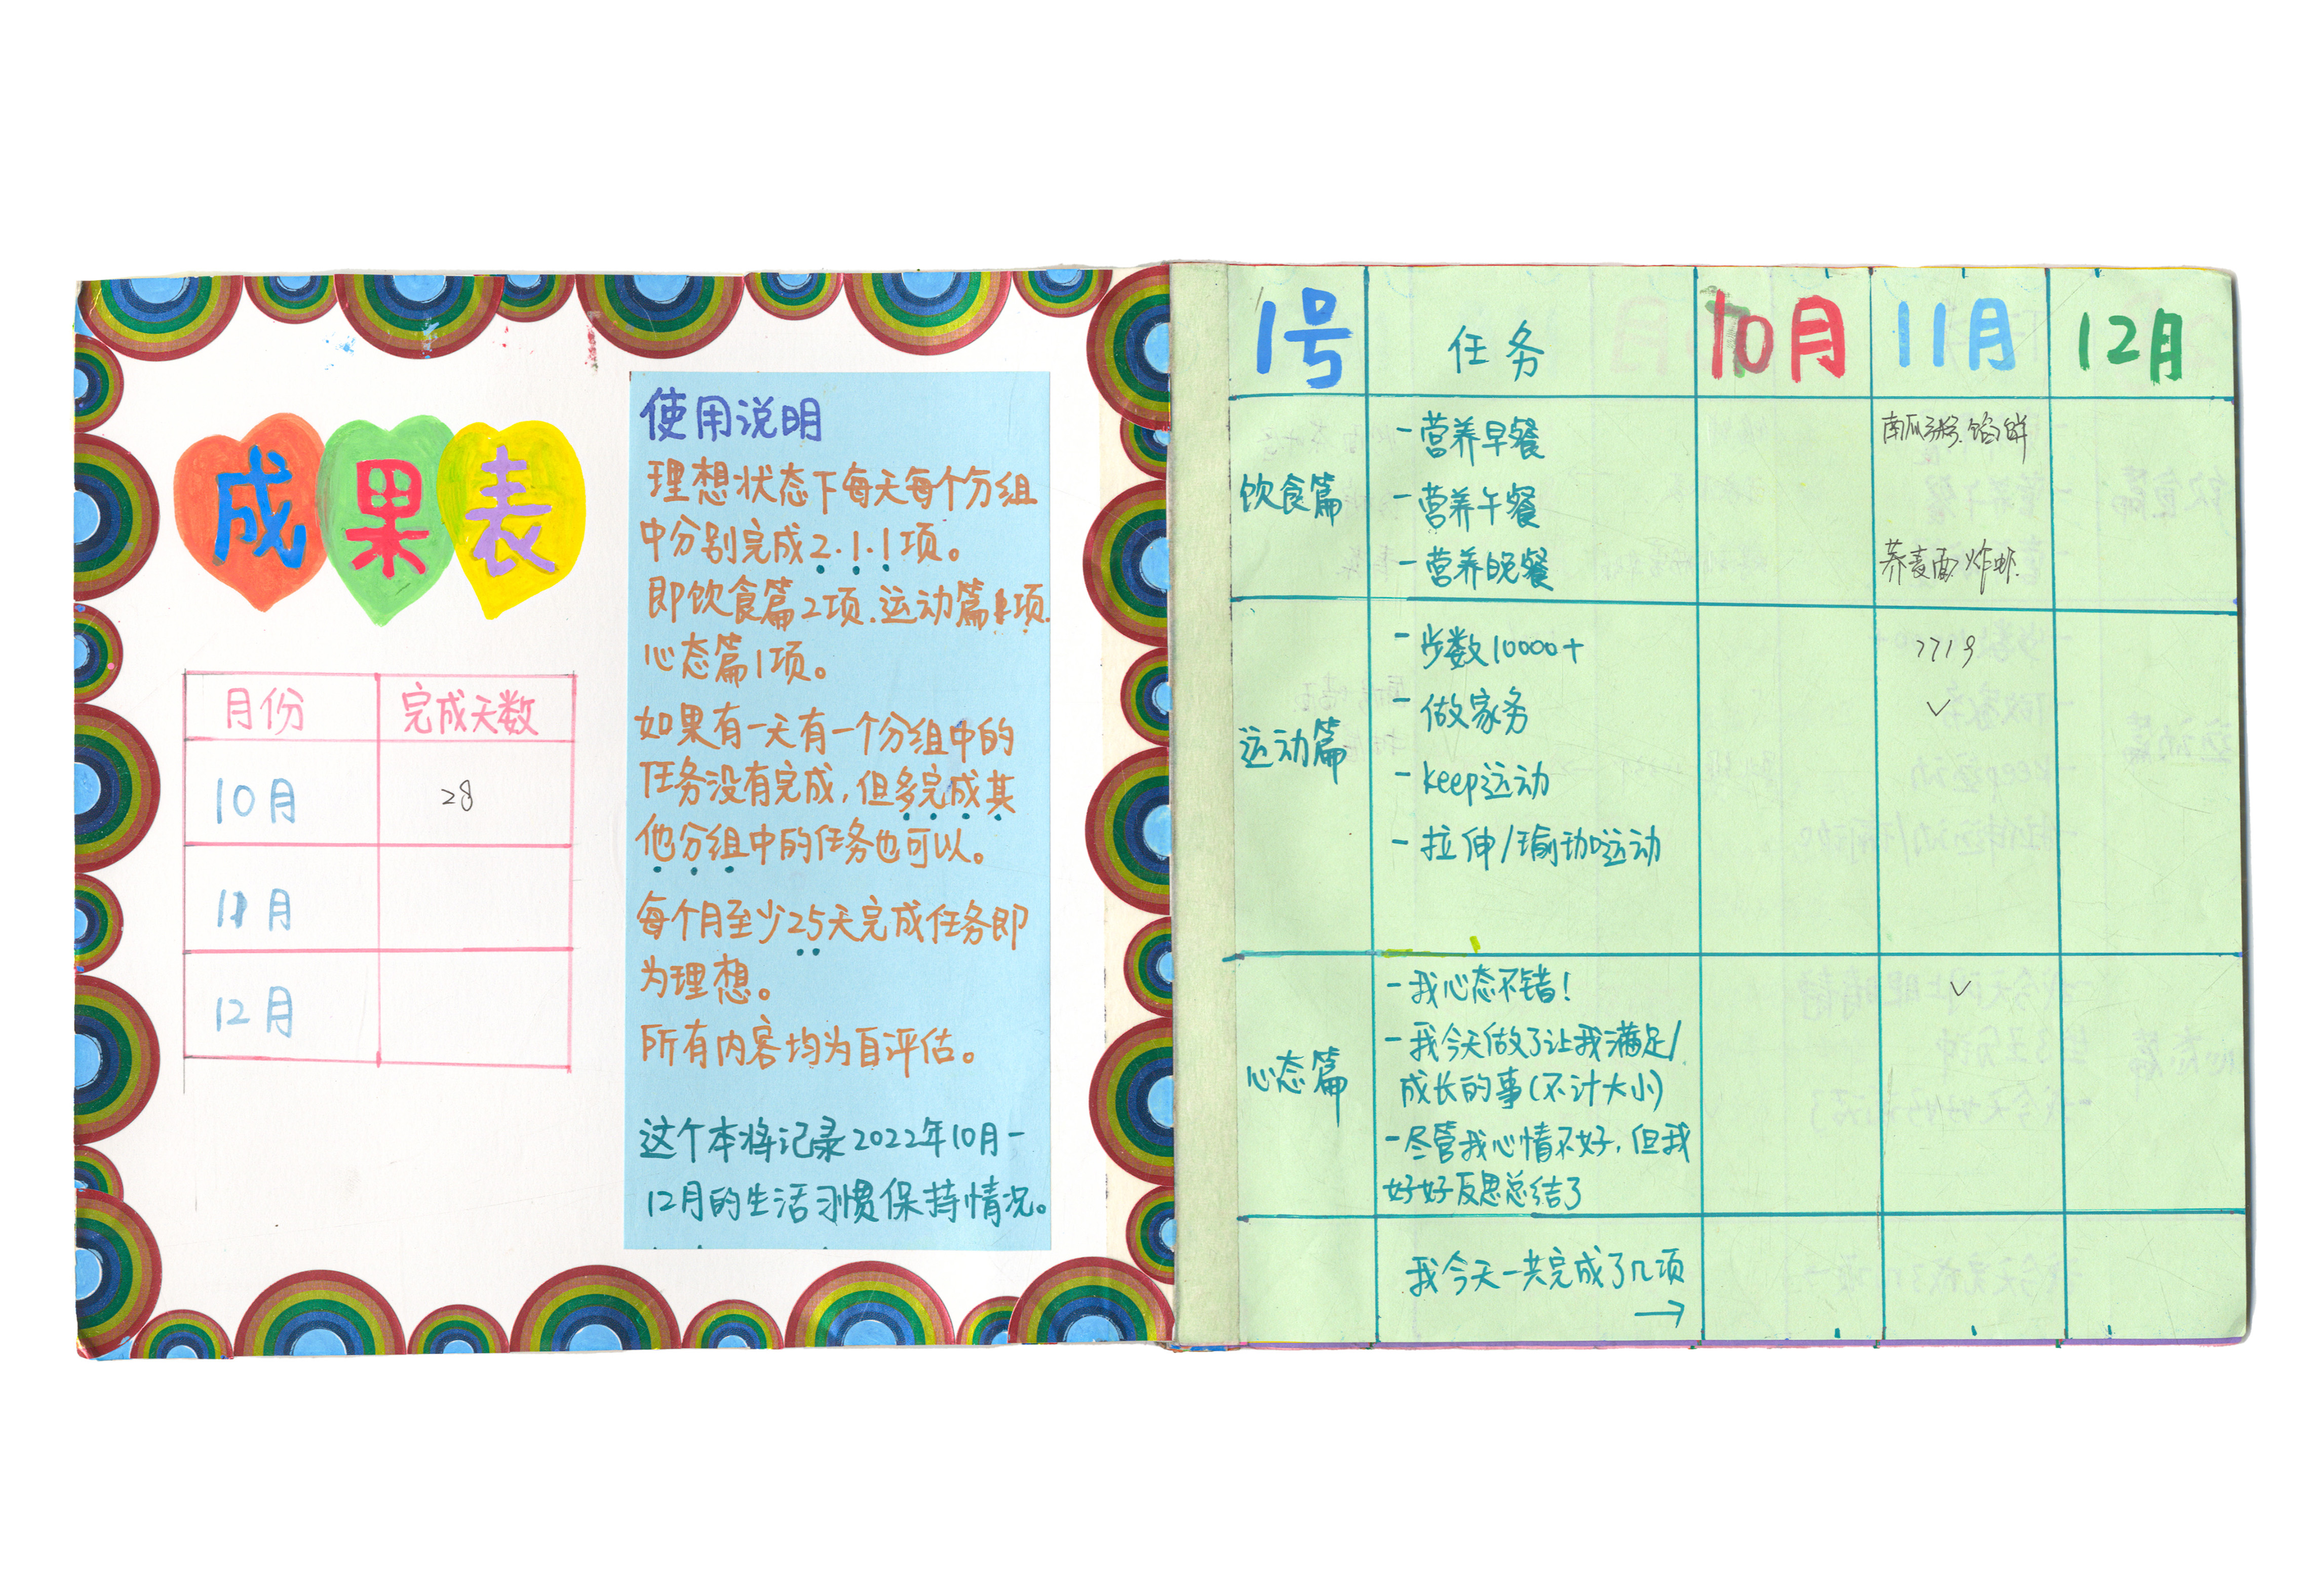 成果表
月份 完成天数
10月 28
11月
12月
使用说明
理想状态下每天每个分组
中分别完成2.1.1项。
即饮食篇2项.运动篇1项.
心态篇1项。
如果有一天有一个分组中的
任务没有完成,但多完成其
他分组中的任务也可以。
每个月至少25天完成任务即
为理想。
所有内容均为自评估。
这个本将记录2022年10月-
12月的生活习惯保持情况。
1号 任务 10月 11月 12月
饮食篇
-营养早餐 南瓜粥.馅饼
-营养午餐
-营养晚餐 荞麦面 炸虾.
运动篇
-步数10000+ 7719
-做家务 ✓
-keep运动
-拉伸/瑜珈运动
心态篇
-我心态不错! ✓
-我今天做了让我满足/
成长的事(不计大小)
-尽管我心情不好,但我
好好反思总结了
我今天一共完成了几项
→